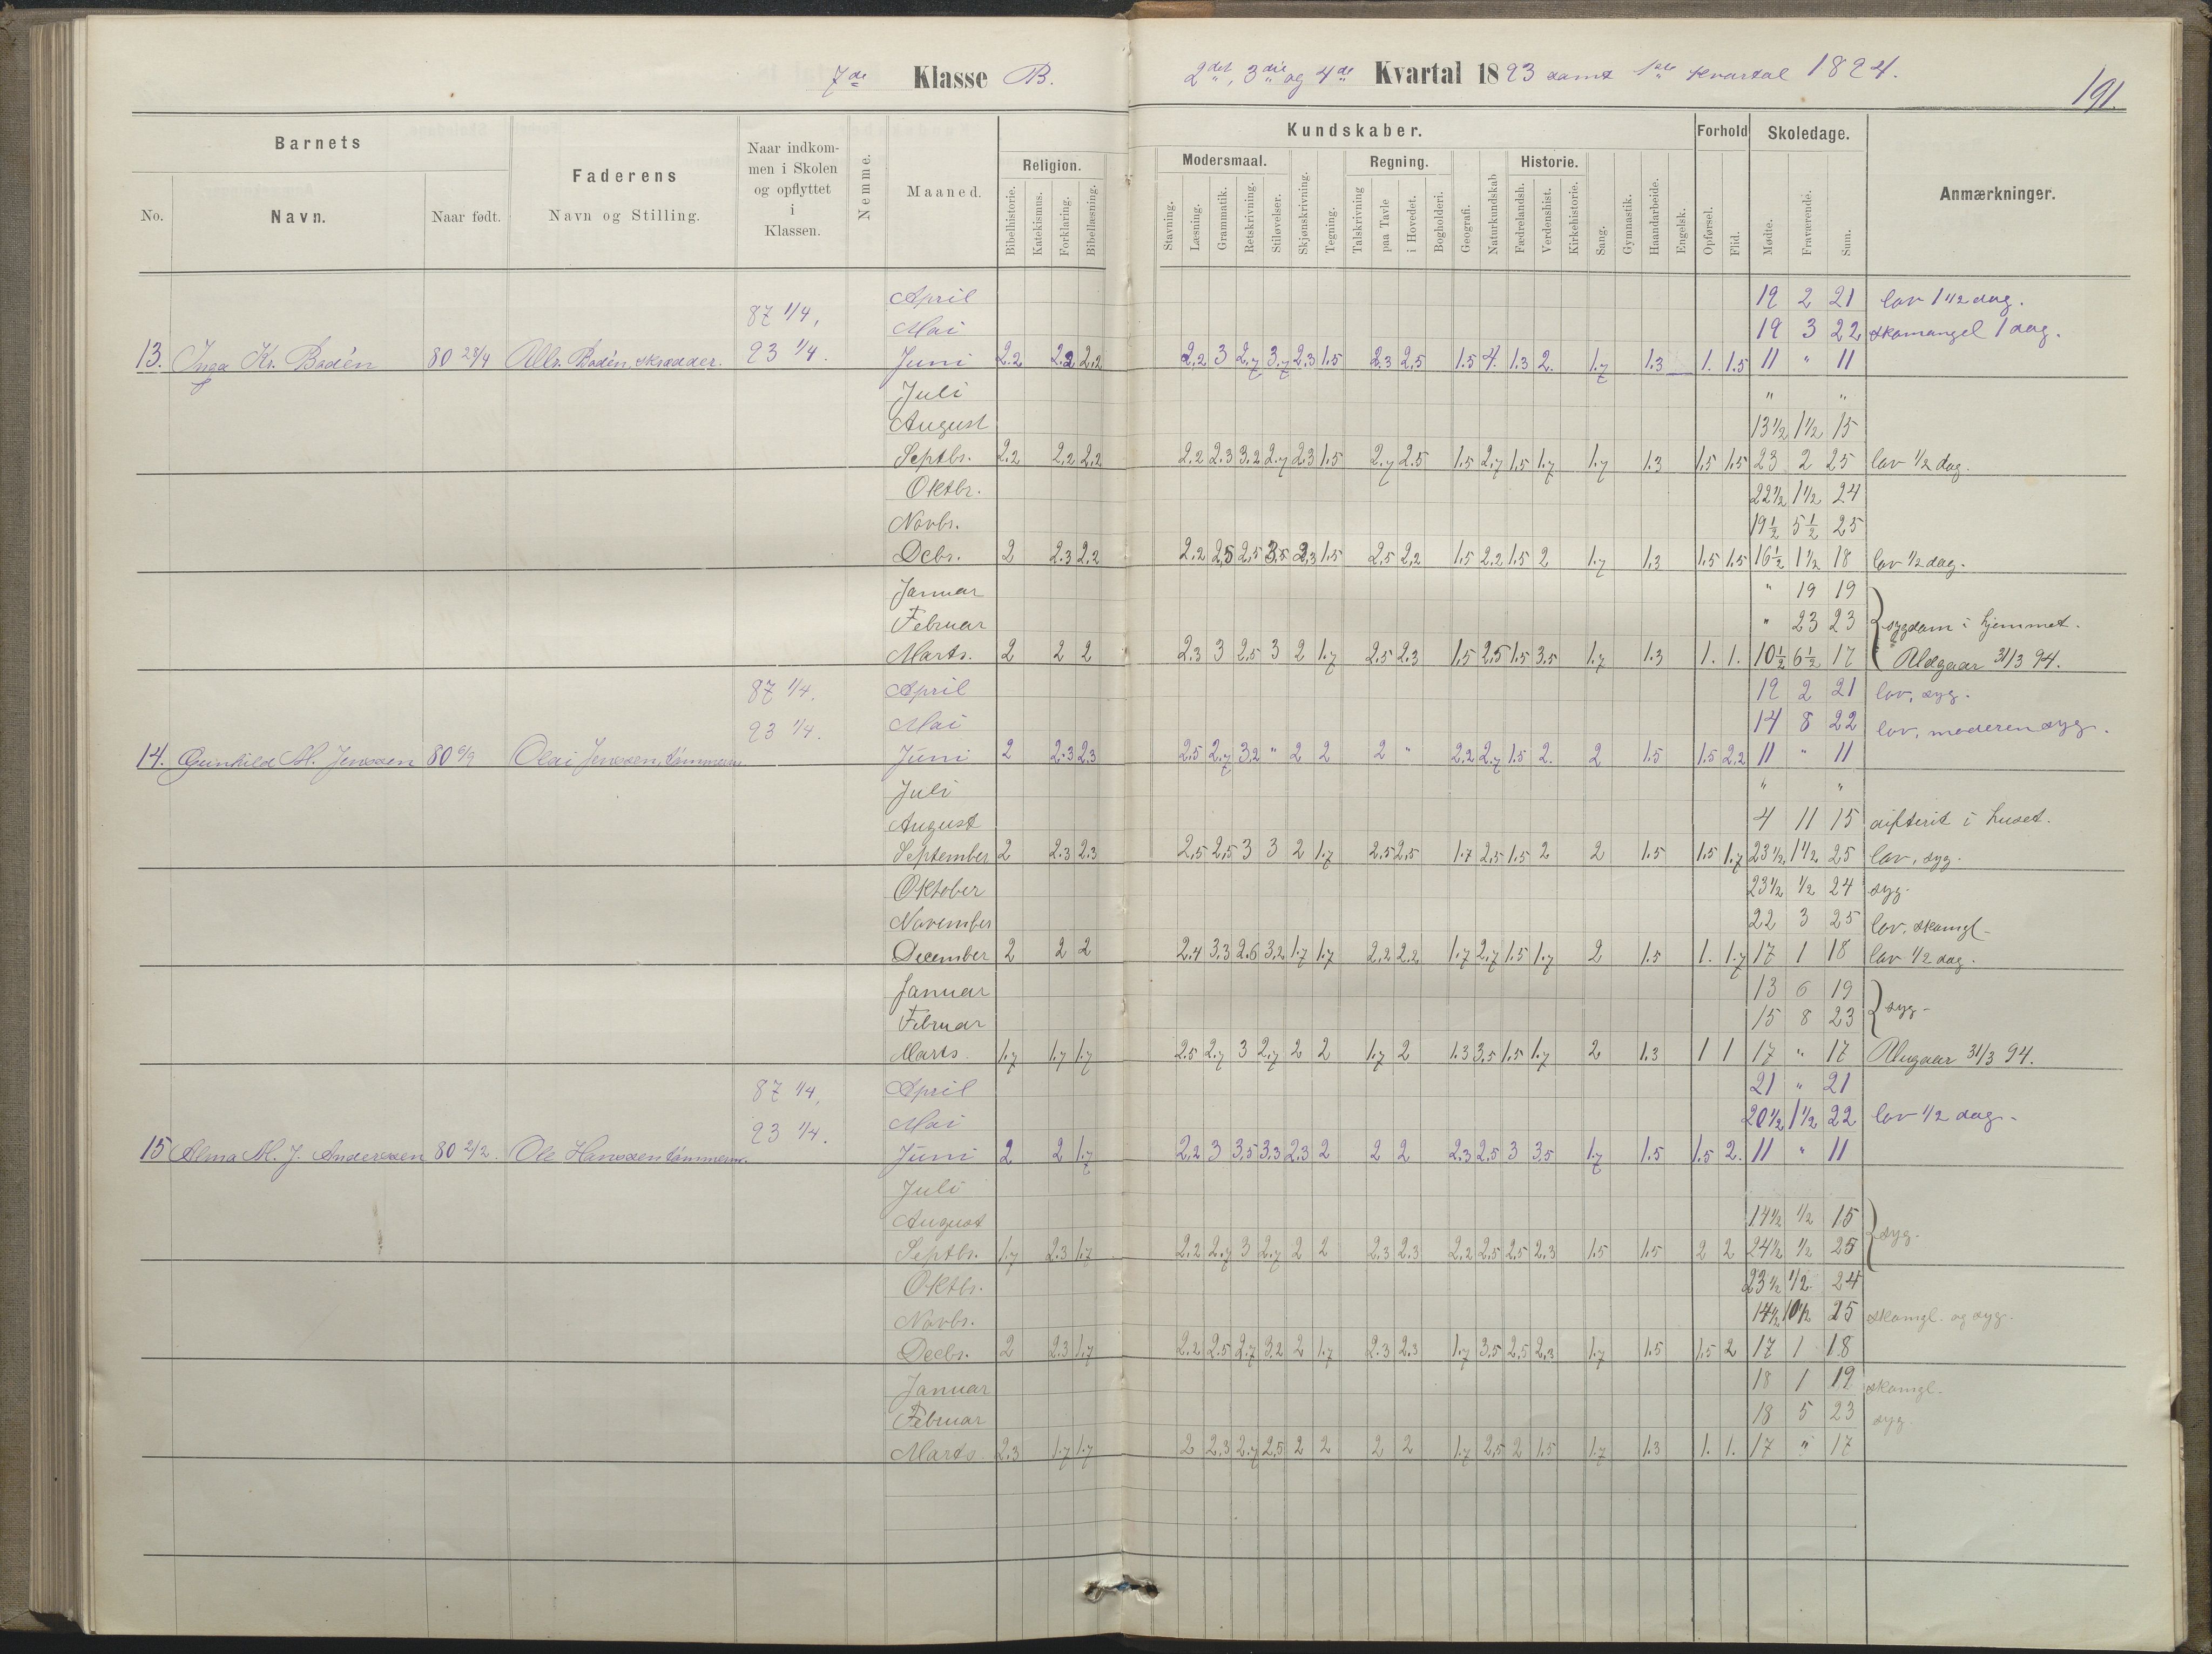 7de Klasse B. 2det, 3die og 4de Kvartal 1893 samt 1ste Kvartal 1894.
191.
Barnets
No. Navn. Naar født.
Faderens
Navn og Stilling.
Naar indkommen i Skolen og opflyttet i Klassen.
Nemme.
Maaned.
Kundskaber.
Religion.
Bibelhistorie. Katekismus. Forklaring. Bibellæsning.
Modersmaal.
Stavning. Læsning. Grammatik. Retskrivning. Stiløvelser. Skjønskrivning. Tegning.
Regning.
Talskrivning paa Tavle i Hovedet. Bogholderi. Geografi. Naturkundskab
Historie.
Fædrelandsh. Verdenshist. Kirkehistorie. Sang. Gymnastik. Haandarbeide. Engelsk.
Forhold
Opførsel. Flid.
Skoledage.
Mødte. Fraværende. Sum.
Anmærkninger.
87 1/4, April 19 2 21 lov 1 1/2 dag.
Mai 19 3 22 skomangel 1 dag.
13. Inga Kr. Bodén 80 28/4 Albr. Bodén, skrædder. 93 1/4. Juni 2.2 2.2 2.2 2.2 3 2.7 3.7 2.3 1.5 2.3 2.5 1.5 4. 1.3 2. 1.7 1.3 1. 1.5 11 " 11
Juli " "
August 13 1/2 1 1/2 15
Septbr. 2.2 2.2 2.2 2.2 2.3 3.2 2.7 2.3 1.5 2.7 2.5 1.5 2.7 1.5 1.7 1.7 1.3 1.5 1.5 23 2 25 lov 1/2 dag.
Oktbr. 22 1/2 1 1/2 24
Novbr. 19 1/2 5 1/2 25
Decbr. 2 2.3 2.2 2.2 2.5 2.5 3.5 2.3 1.5 2.5 2.2 1.5 2.2 1.5 2 1.7 1.3 1.5 1.5 16 1/2 1 1/2 18 lov 1/2 dag.
Januar " 19 19
Februar " 23 23 sygdom i hjemmet.
Marts. 2 2 2 2.3 3 2.5 3 2 1.7 2.5 2.3 1.5 2.5 1.5 3.5 1.7 1.3 1. 1. 10 1/2 6 1/2 17 Udgaar 31/3 94.
87 1/4. April 19 2 21 lov, syg.
93 1/4. Mai 14 8 22 lov, moderen syg.
14. Gunhild M. Jenssen 80 6/9 Olai Jenssen, tømmerm. Juni 2 2.3 2.3 2.5 2.7 3.2 " 2 2 2 " 2.2 2.7 1.5 2. 2 1.5 1.5 2.2 11 " 11
Juli " "
August 4 11 15 difterit i huset.
September 2 2.3 2.3 2.5 2.5 3 3 2 1.7 2.5 2.5 1.7 2.5 1.5 2 2 1.5 1.5 1.7 23 1/2 1 1/2 25 lov, syg.
Oktober 23 1/2 1/2 24 syg.
November 22 3 25 lov, skomgl.
December 2 2 2 2.4 3.3 2.6 3.2 1.7 1.7 2.2 2.2 1.7 2.7 1.5 1.7 2 1.5 1. 1.7 17 1 18 lov 1/2 dag.
Januar 13 6 19
Februar 15 8 23 syg.
Marts 1.7 1.7 1.7 2.5 2.7 3 2.7 2 2 1.7 2 1.3 3.5 1.5 1.7 2 1.3 1 1 17 " 17 Udgaar 31/3 94.
87 1/4, April 21 " 21
93 1/4. Mai 20 1/2 1 1/2 22 lov 1/2 dag.
15 Alma M. J. Anderssen 80 2/2. Ole Hanssen tømmerm. Juni 2 2 1.7 2.2 3 3.5 3.3 2.3 2 2 2 2.3 2.5 3 3.5 1.7 1.5 1.5 2. 11 " 11
Juli
August 14 1/2 1/2 15
Septbr. 1.7 2.3 1.7 2.2 2.7 3 2.7 2 2 2.3 2.3 2.2 2.5 2.5 2.3 1.5 1.5 2 2 24 1/2 1/2 25 syg.
Oktbr. 23 1/2 1/2 24
Novbr. 14 1/2 10 1/2 25 skomgl. og syg.
Decbr. 2 2.3 1.7 2.2 2.5 2.7 3.2 2 1.7 2.3 2.3 1.7 3.5 2.5 2.3 1.7 1.5 1.5 2 17 1 18
Januar 18 1 19 skomgl.
Februar 18 5 23 syg.
Marts 2.3 1.7 1.7 2 2.3 2.7 2.5 2 2 2 2 1.7 2.5 2 1.5 1.7 1.3 1. 1. 17 " 17